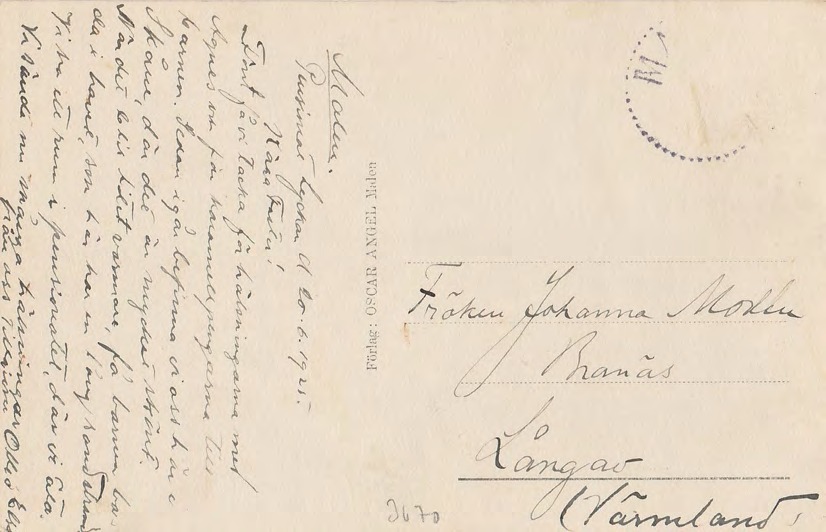 Molle.
Pensionat Lyckan d 20.6.1925.
Kära Faster!
Först få vi tacka för hälsningarna med
Agnes o. för karamellpengarna till
barnen. Sedan igår befinna vi oss här i
Skåne, där det är mycket skönt.
När det blir lite varmare, få barnen ba-
da i havet, som här har en lång sandstrand
Vi ha ett rum i pensionatet, där vi äta.
Vi sända nu många hälsningar
från oss Ollo o Elsa
Förlag: OSCAR ANGEL Mölen
Fröken Johanna Modén
Branäs
Långav
(Värmland)
3670